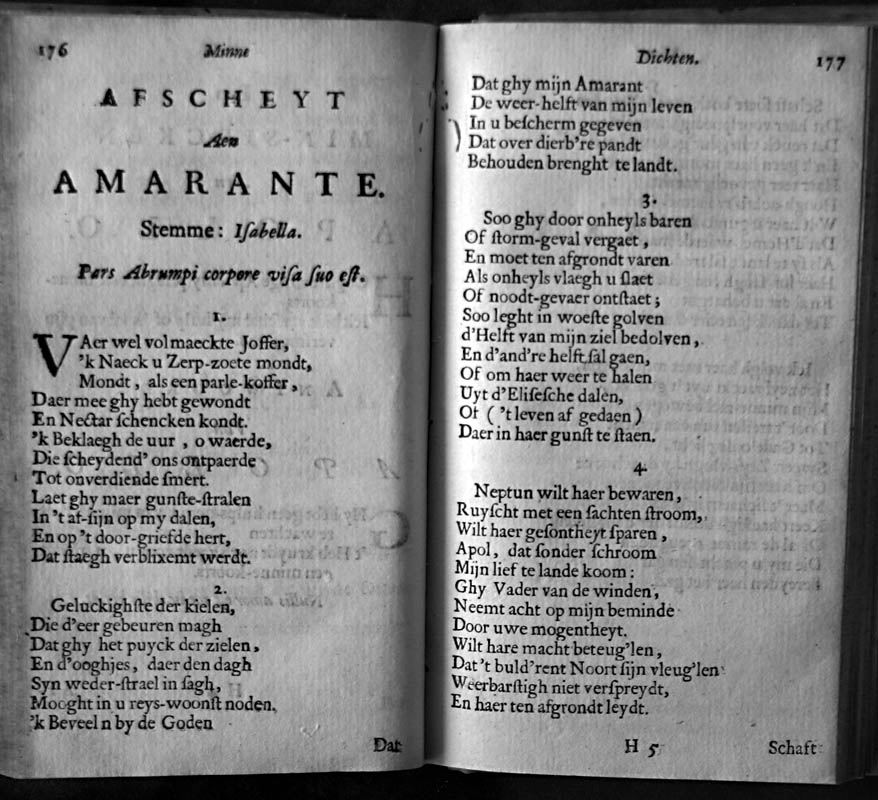 176
Minne
AFSCHEYT
Aen
AMARANTE.
Stemme: Iſabella.
Pars Abrumpi corpore viſa ſuo eſt.
1.
VAer wel vol maeckte Joffer,
'k Naeck u Zerp-zoete mondt,
Mondt, als een parle-koffer,
Daer mee ghy hebt gewondt
En Nectar ſchencken kondt.
'k Beklaegh de uur , o waerde,
Die ſcheydend' ons ontpaerde
Tot onverdiende ſmert.
Laet ghy maer gunſte-ſtralen
In 't af-ſijn op my dalen,
En op 't door-griefde hert,
Dat ſtaegh verblixemt werdt.
2.
Geluckighſte der kielen,
Die d'eer gebeuren magh
Dat ghy het puyck der zielen,
En d'ooghjes, daer den dagh
Syn weder-ſtrael in ſagh,
Mooght in u reys-woonſt noden.
'k Beveel n by de Goden
Dat
Dichten.
177
Dat ghy mijn Amarant
De weer-helft van mijn leven
In u beſcherm gegeven
Dat over dierb're pandt
Behouden brenght te landt.
3.
Soo ghy door onheyls baren
Of ſtorm-geval vergaet,
En moet ten afgrondt varen
Als onheyls vlaegh u ſlaet
Of noodt-gevaer ontſtaet;
Soo leght in woeſte golven
d'Helft van mijn ziel bedolven,
En d'and're helft ſal gaen,
Of om haer weer te halen
Uyt d'Eliſeſche dalen,
Of ( 't leven af gedaen)
Daer in haer gunſt te ſtaen.
4.
Neptun wilt haer bewaren,
Ruyſcht met een ſachten ſtroom,
Wilt haer geſontheyt ſparen,
Apol, dat ſonder ſchroom
Mijn lief te lande koom:
Ghy Vader van de winden,
Neemt acht op mijn beminde
Door uwe mogentheyt.
Wilt hare macht beteug'len,
Dat 't buld'rent Noort ſijn vleug'len
Weerbarſtigh niet verſpreydt,
En haer ten afgrondt leydt.
H 5
Schaft